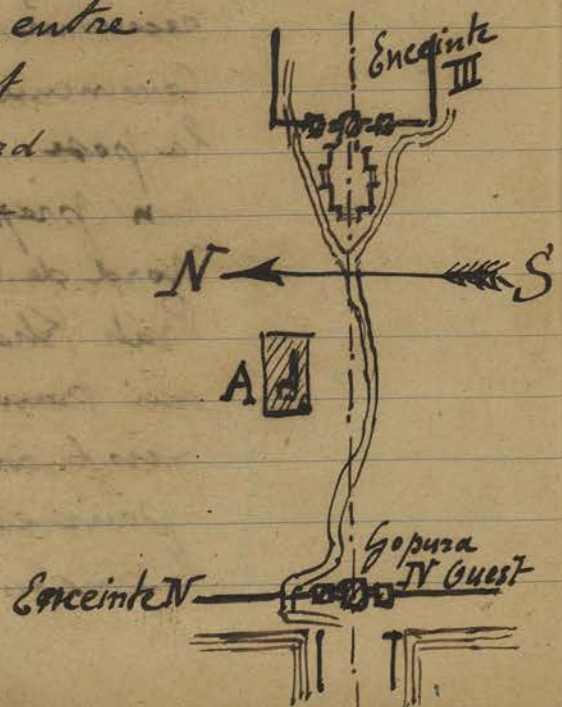 entre
Enceinte
III
N
S
A
Gopura
IV Ouest
Enceinte IV